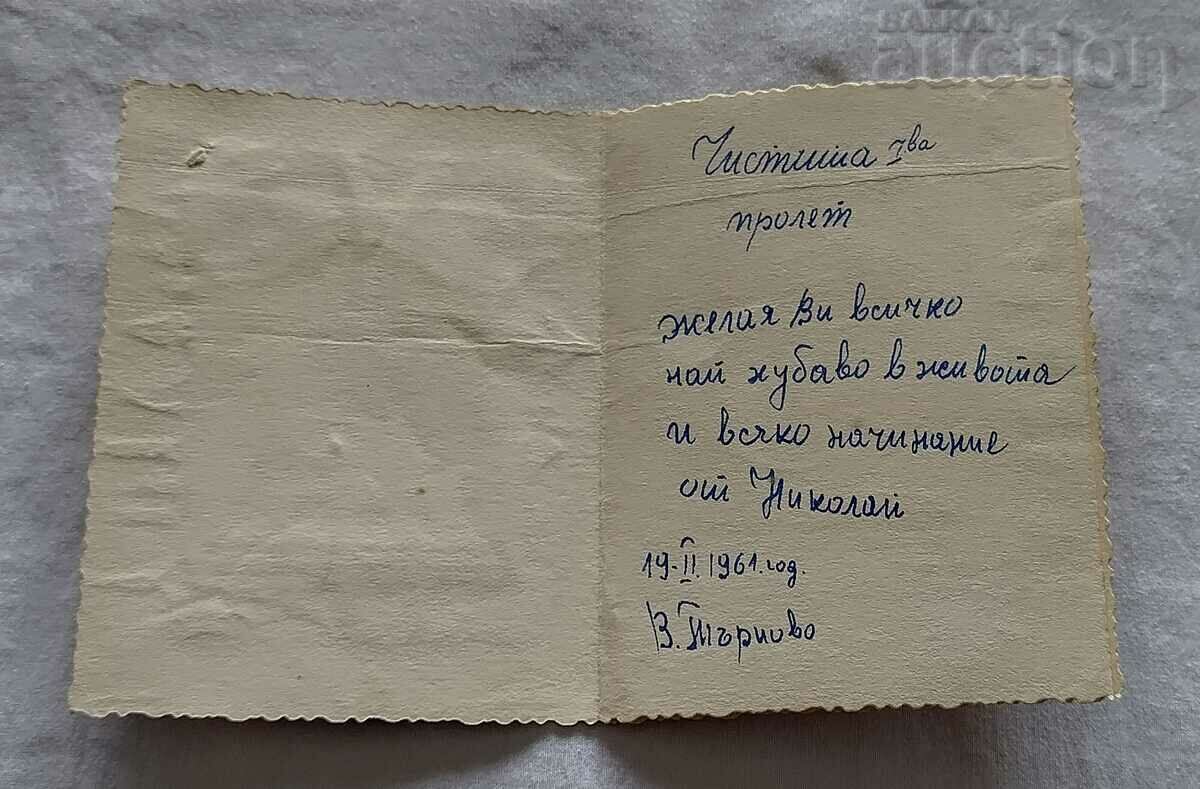 БАЛКАН
auction
Чистита Iва
пролет
желая Ви всичко
най хубаво в живота
и всяко начинание
от Николай
19-II.1961.год.
В. Търново